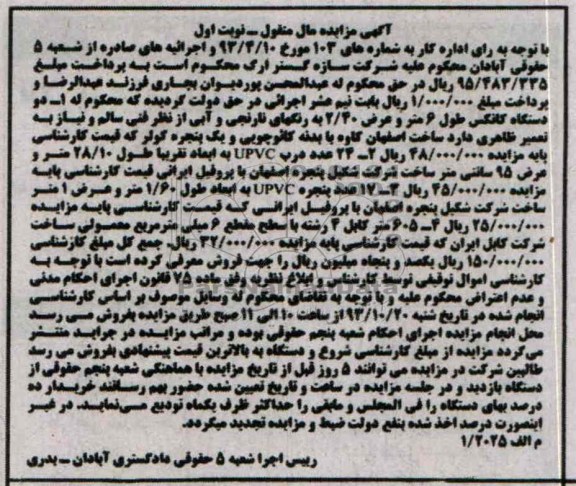 آگهی مزایده مال منقول ــ نوبت اول
با توجه به رای اداره کار به شماره های ۱۰۳ مورخ ۹۳/۴/۱۰ و اجرائیه های صادره از شعبه ۵
حقوقی آبادان محکوم علیه شرکت سازه گستر ارک محکوم است به پرداخت مبلغ
۹۵/۴۸۳/۳۳۵ ریال در حق محکوم له عبدالمحسن پوردیوان بجاری فرزند عبدالرضا و
پرداخت مبلغ ۱/۰۰۰/۰۰۰ ریال بابت نیم عشر اجرائی در حق دولت گردیده که محکوم له ۱ــ دو
دستگاه کانکس طول ۶ متر و عرض ۲/۴۰ به رنگهای نارنجی و آبی از نظر فنی سالم و نیاز به
تعمیر ظاهری دارد ساخت اصفهان کاوه با بدنه کائوچویی و یک پنجره کولر که قیمت کارشناسی
پایه مزایده ۴۸/۰۰۰/۰۰۰ ریال ۲ــ ۲۴ عدد درب UPVC به ابعاد تقریبا طول ۲۸/۱۰ متر و
عرض ۹۵ سانتی متر ساخت شرکت شکیل پنجره اصفهان با پروفیل ایرانی قیمت کارشناسی پایه
مزایده ۴۵/۰۰۰/۰۰۰ ریال ۳ــ ۱۷ عدد پنجره UPVC به ابعاد طول ۱/۶۰ متر و عرض ۱ متر
ساخت شرکت شکیل پنجره اصفهان با پروفیل ایرانی که قیمت کارشناسی پایه مزایده
۲۵/۰۰۰/۰۰۰ ریال ۴ــ ۶۰۵ متر کابل ۴ رشته با سطح مقطع ۶ میلی مترمربع معمولی ساخت
شرکت کابل ایران که قیمت کارشناسی پایه مزایده ۳۲/۰۰۰/۰۰۰ ریال. جمع کل مبلغ کارشناسی
۱۵۰/۰۰۰/۰۰۰ ریال یکصد و پنجاه میلیون ریال و جهت فروش معرفی کرده است با توجه به
کارشناسی اموال توقیفی توسط کارشناس و ابلاغ نظریه وفق ماده ۷۵ قانون اجرای احکام مدنی
و عدم اعتراض محکوم علیه و با توجه به تقاضای محکوم له وسایل موصوف بر اساس کارشناسی
انجام شده در تاریخ شنبه ۹۳/۱۰/۲۰ از ساعت ۱۰ الی ۱۱ صبح طریق مزایده بفروش می رسد
محل انجام مزایده اجرای احکام شعبه پنجم حقوقی بوده و مراتب مزایده در جراید منتشر
می گردد مزایده از مبلغ کارشناسی شروع و دستگاه به بالاترین قیمت پیشنهادی بفروش می رسد
طالبین شرکت در مزایده می توانند ۵ روز قبل از تاریخ مزایده با هماهنگی شعبه پنجم حقوقی از
دستگاه بازدید و در جلسه مزایده در ساعت و تاریخ تعیین شده حضور بهم رسانند خریدار ده
درصد بهای دستگاه را فی المجلس و مابقی را حداکثر ظرف یکماه تودیع می نماید. در غیر
اینصورت درصد اخذ شده بنفع دولت ضبط و مزایده تجدید میگردد.
م الف ۱/۲۰۲۵
رییس اجرا شعبه ۵ حقوقی دادگستری آبادان ــ بدری